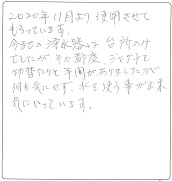 2020年11月より使用させて
もらっています。
今までの浄水器は台所のみ
でしたが、その都度、ジャグチを
切替たりと手間がありましたが
何も気にせず、水を使う事が出来
気にいっています。